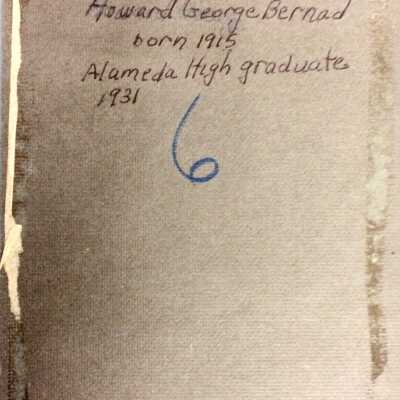 Howard George Bernad
born 1915
Alameda High graduate
1931
6